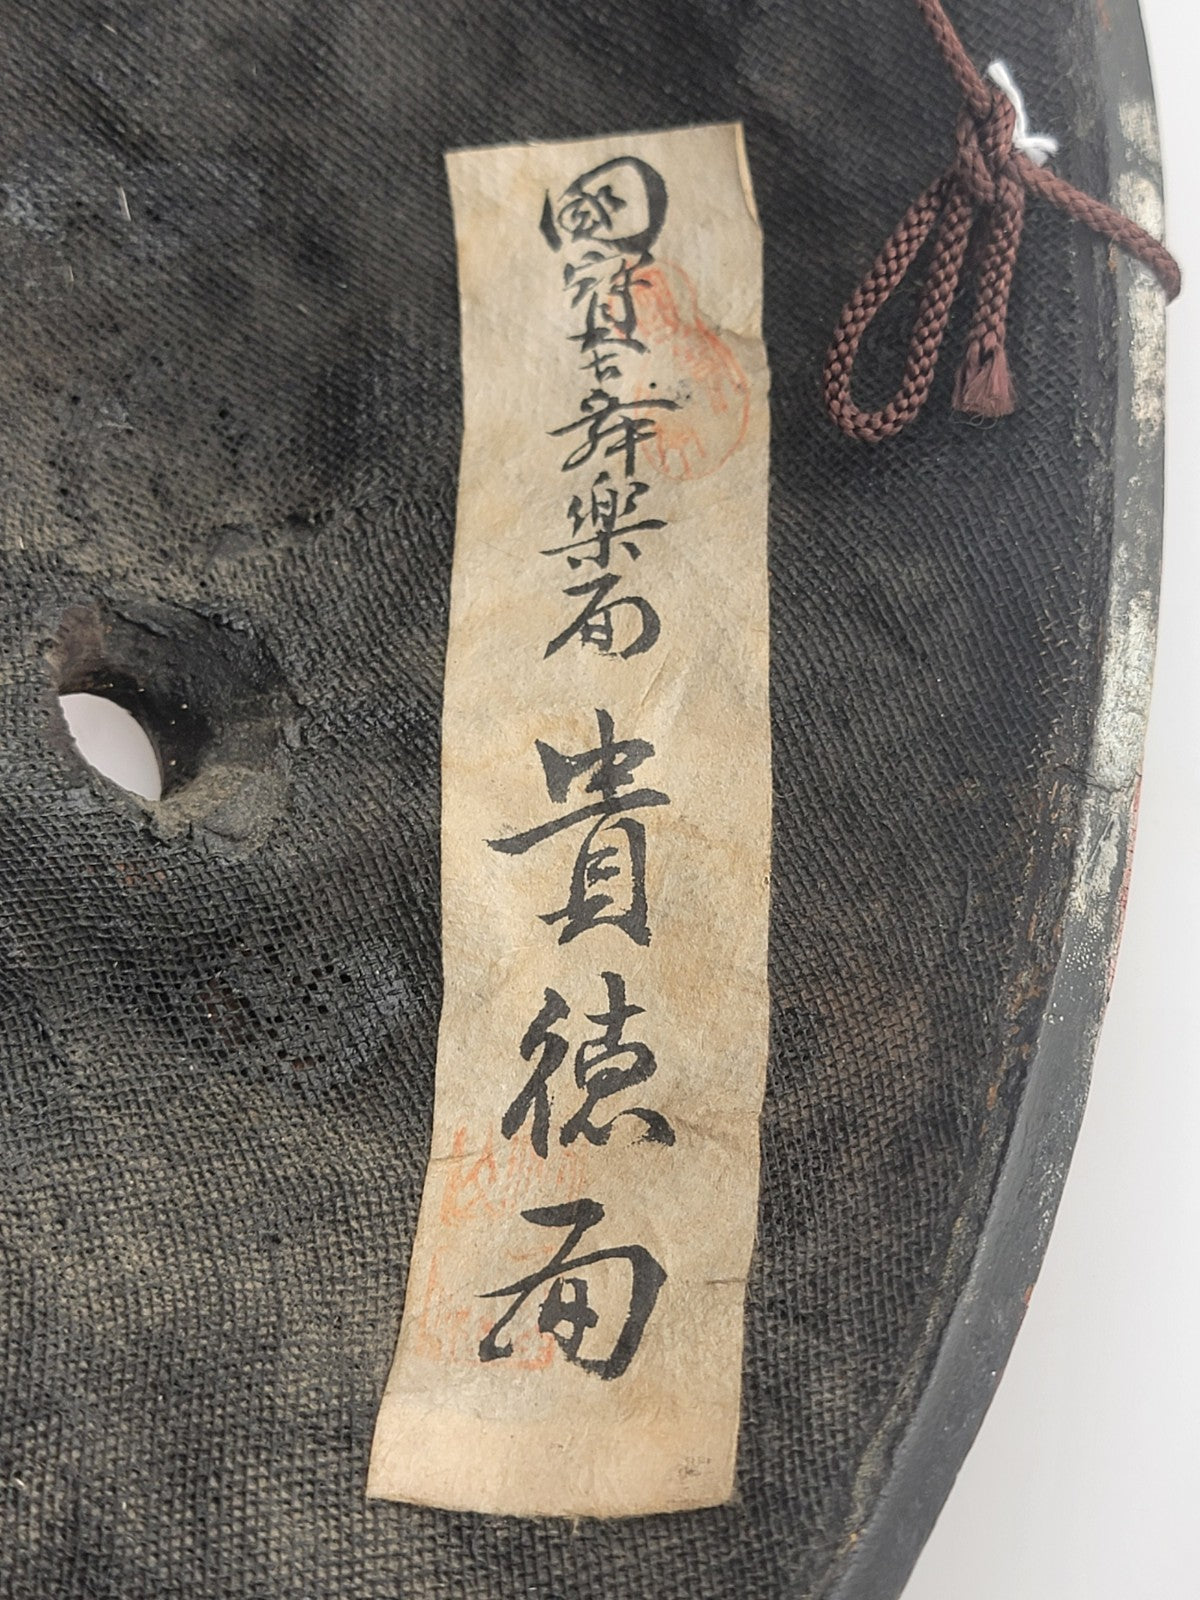 國寶古舞樂面 貴徳面